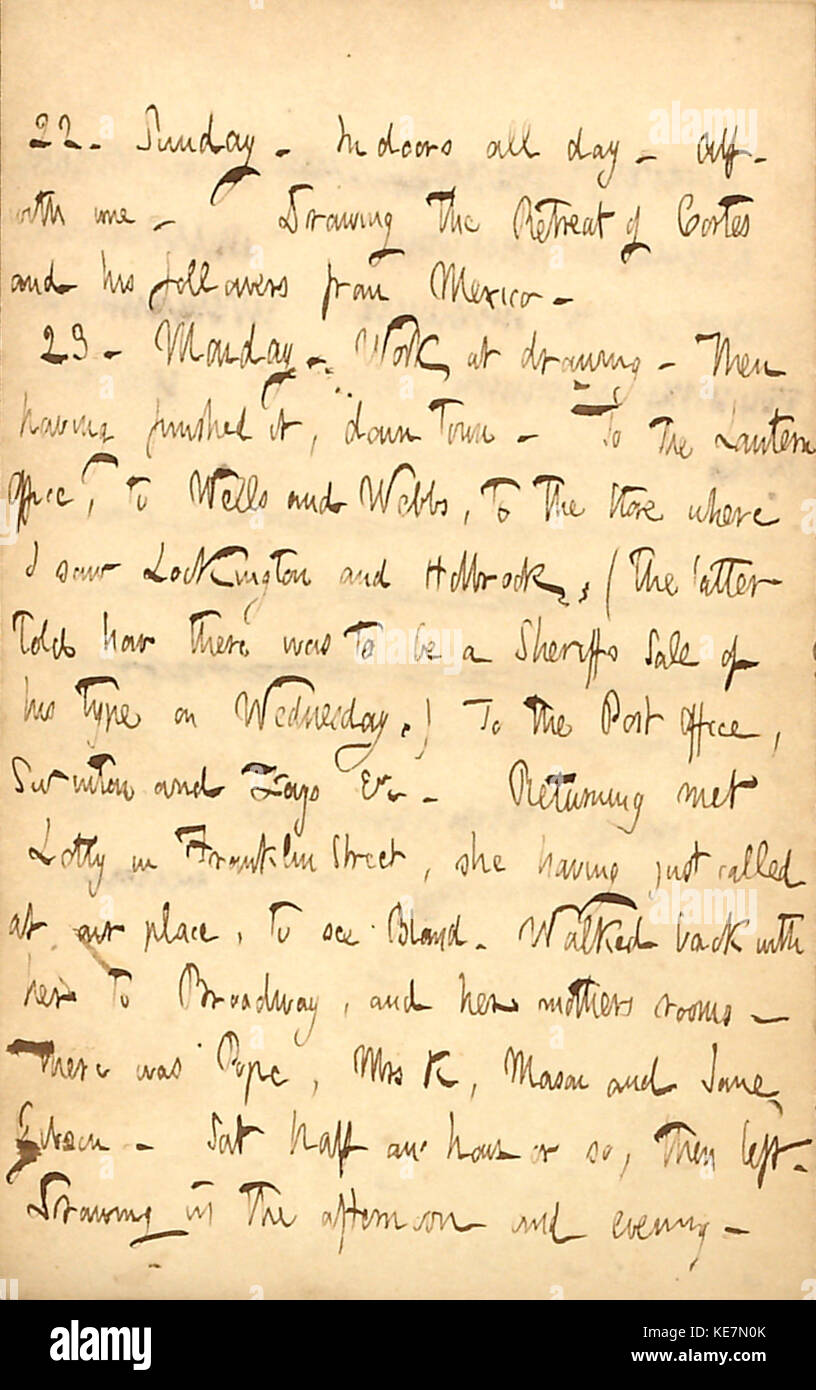 22. Sunday. In doors all day. Alf.
with me. Drawing the Retreat of Cortes
and his followers from Mexico.
23. Monday. Work at drawing. Then
having finished it, down town. To the Lantern
Office, to Wells and Webbs, to the store where
I saw Lockington and Holbrook, (the latter
told how there was to be a Sheriffs Sale of
his type on Wednesday.) To the Post Office,
Swinton and Fays &c. Returning met
Lotty in Franklin Street, she having just called
at our place, to see Bland. Walked back with
her to Broadway, and her mothers rooms.
There was Pope, Mrs K, Mason and Jane
Gibson. Sat half an hour or so, then left.
Drawing in the afternoon and evening.
alamy
alamy stock photo
KE7N0K
www.alamy.com